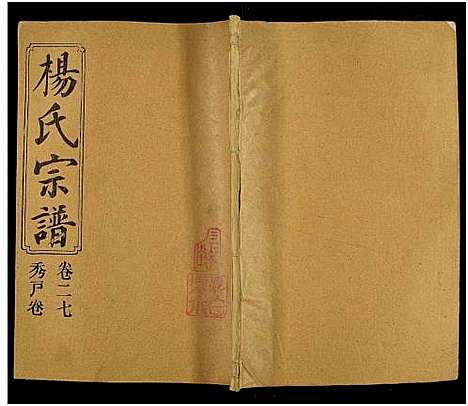 楊氏宗譜
卷二七
秀戸卷